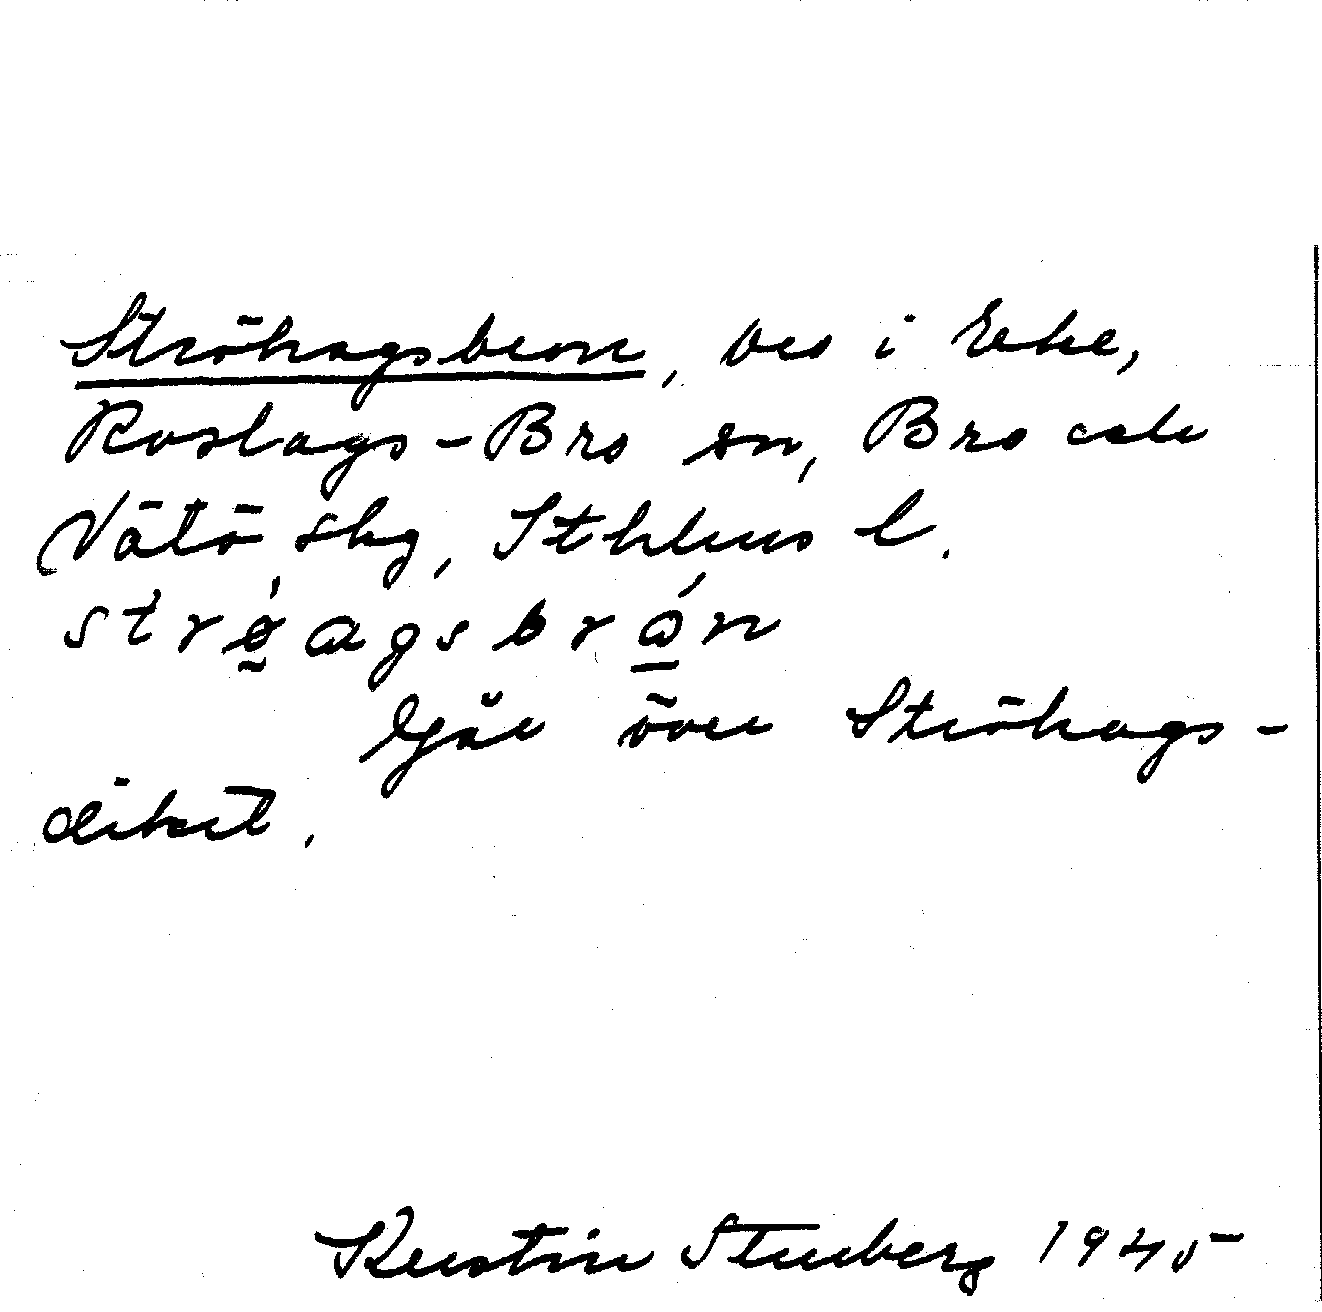 Ströhagsbron, bro i Eke,
Roslags-Bro sn, Bro och
Vätö skg, Sthlms l.
strǿ̰agsbrɷ̱́n
Går över Ströhags-
diket.
Kerstin Stenberg 1945